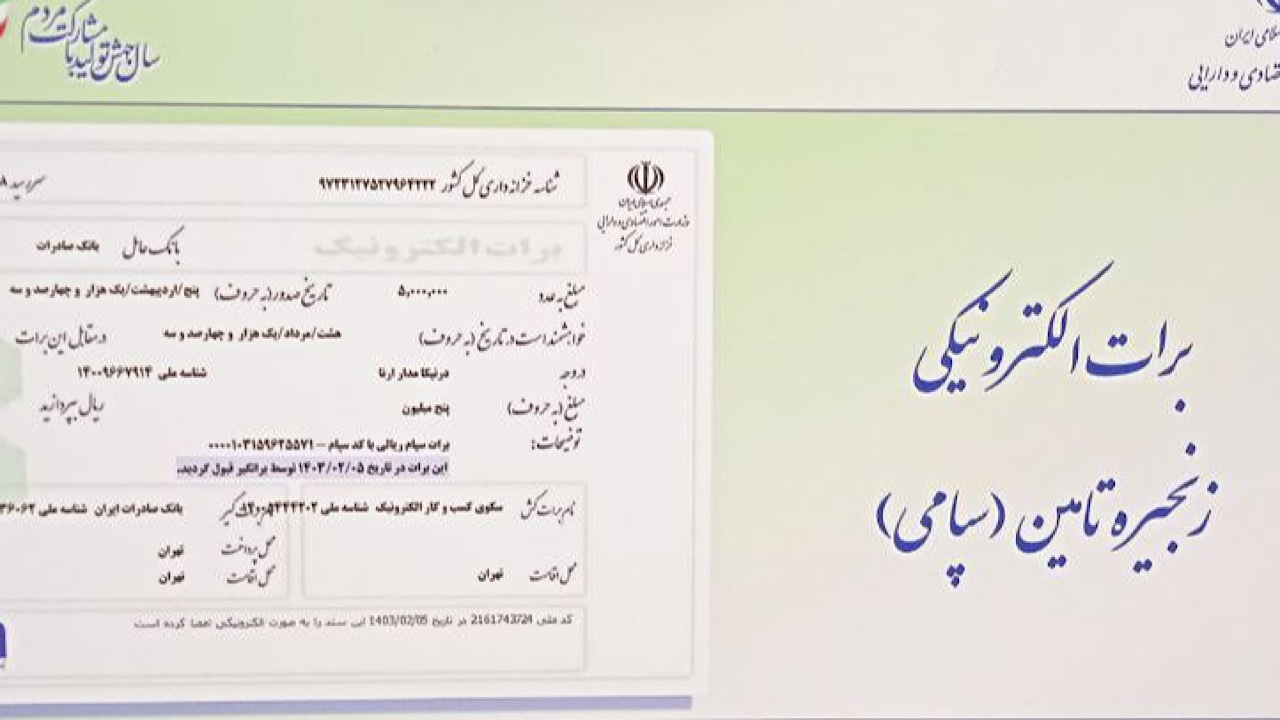 سال جهش تولید با
مشارکت مردم
اسلامی ایران
اقتصادی و دارایی
برات الکترونیکی
زنجیره تامین (سپامی)
جمهوری اسلامی ایران
وزارت امور اقتصادی و دارایی
خزانه داری کل کشور
شناسه خزانه داری کل کشور ۹۷۲۳۱۲۷۵۲۷۹۶۴۲۲۲ سررسید
برات الکترونیک بانک عامل بانک صادرات
مبلغ به عدد ۵,۰۰۰,۰۰۰ تاریخ صدور (به حروف) پنج/اردیبهشت/یک هزار و چهارصد و سه
خواهشمند است در تاریخ (به حروف) هشت/مرداد/یک هزار و چهارصد و سه در مقابل این برات
در وجه درنیکا مدار ارنا شناسه ملی ۱۴۰۰۹۶۶۷۹۱۴
مبلغ (به حروف) پنج میلیون ریال بپردازید
توضیحات: برات سپام ریالی با کد سپام – ۰۰۰۰۱۰۳۱۵۹۶۲۵۵۷۱
این برات در تاریخ ۱۴۰۳/۰۲/۰۵ توسط براتگیر قبول گردید.
نام برات کش سکوی کسب و کار الکترونیک شناسه ملی
محل اقامت تهران
بانک صادرات ایران شناسه ملی
محل پرداخت تهران
محل اقامت تهران
کد ملی 2161743724 در تاریخ 1403/02/05 این سند را به صورت الکترونیکی امضا کرده است